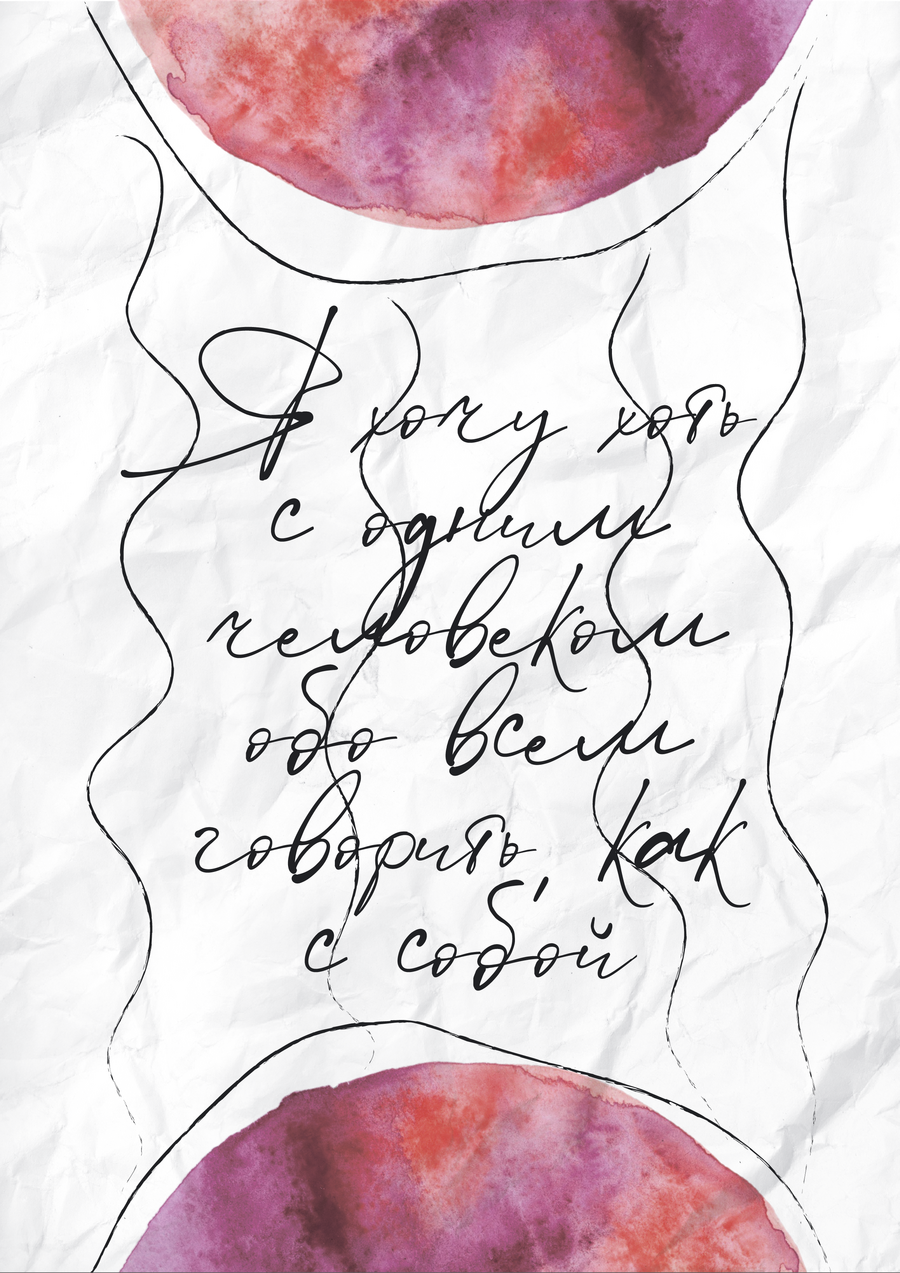 Я хочу хоть
с одним
человеком
обо всем
говорить, как
с собой